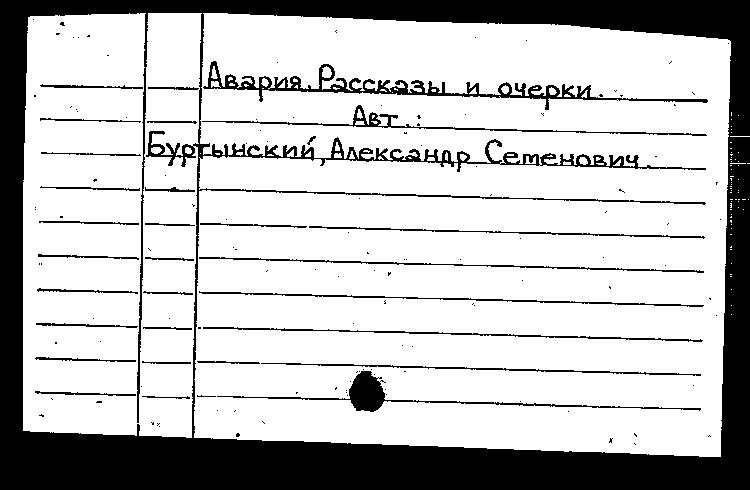 Авария. Рассказы и очерки.
Авт.:
Буртынский, Александр Семенович.